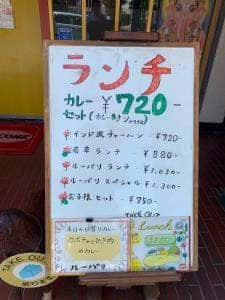 ランチ
カレー ¥720-
セット
インド風チャーハン ¥720-
若草ランチ ¥880-
ルーパリランチ ¥1,030-
ルーパリスペシャル ¥1,300-
お子様セット ¥750-
TAKE OUT
本日の日替りカレー
のカレー
Lunch
TAKE OUT
ルーパリ